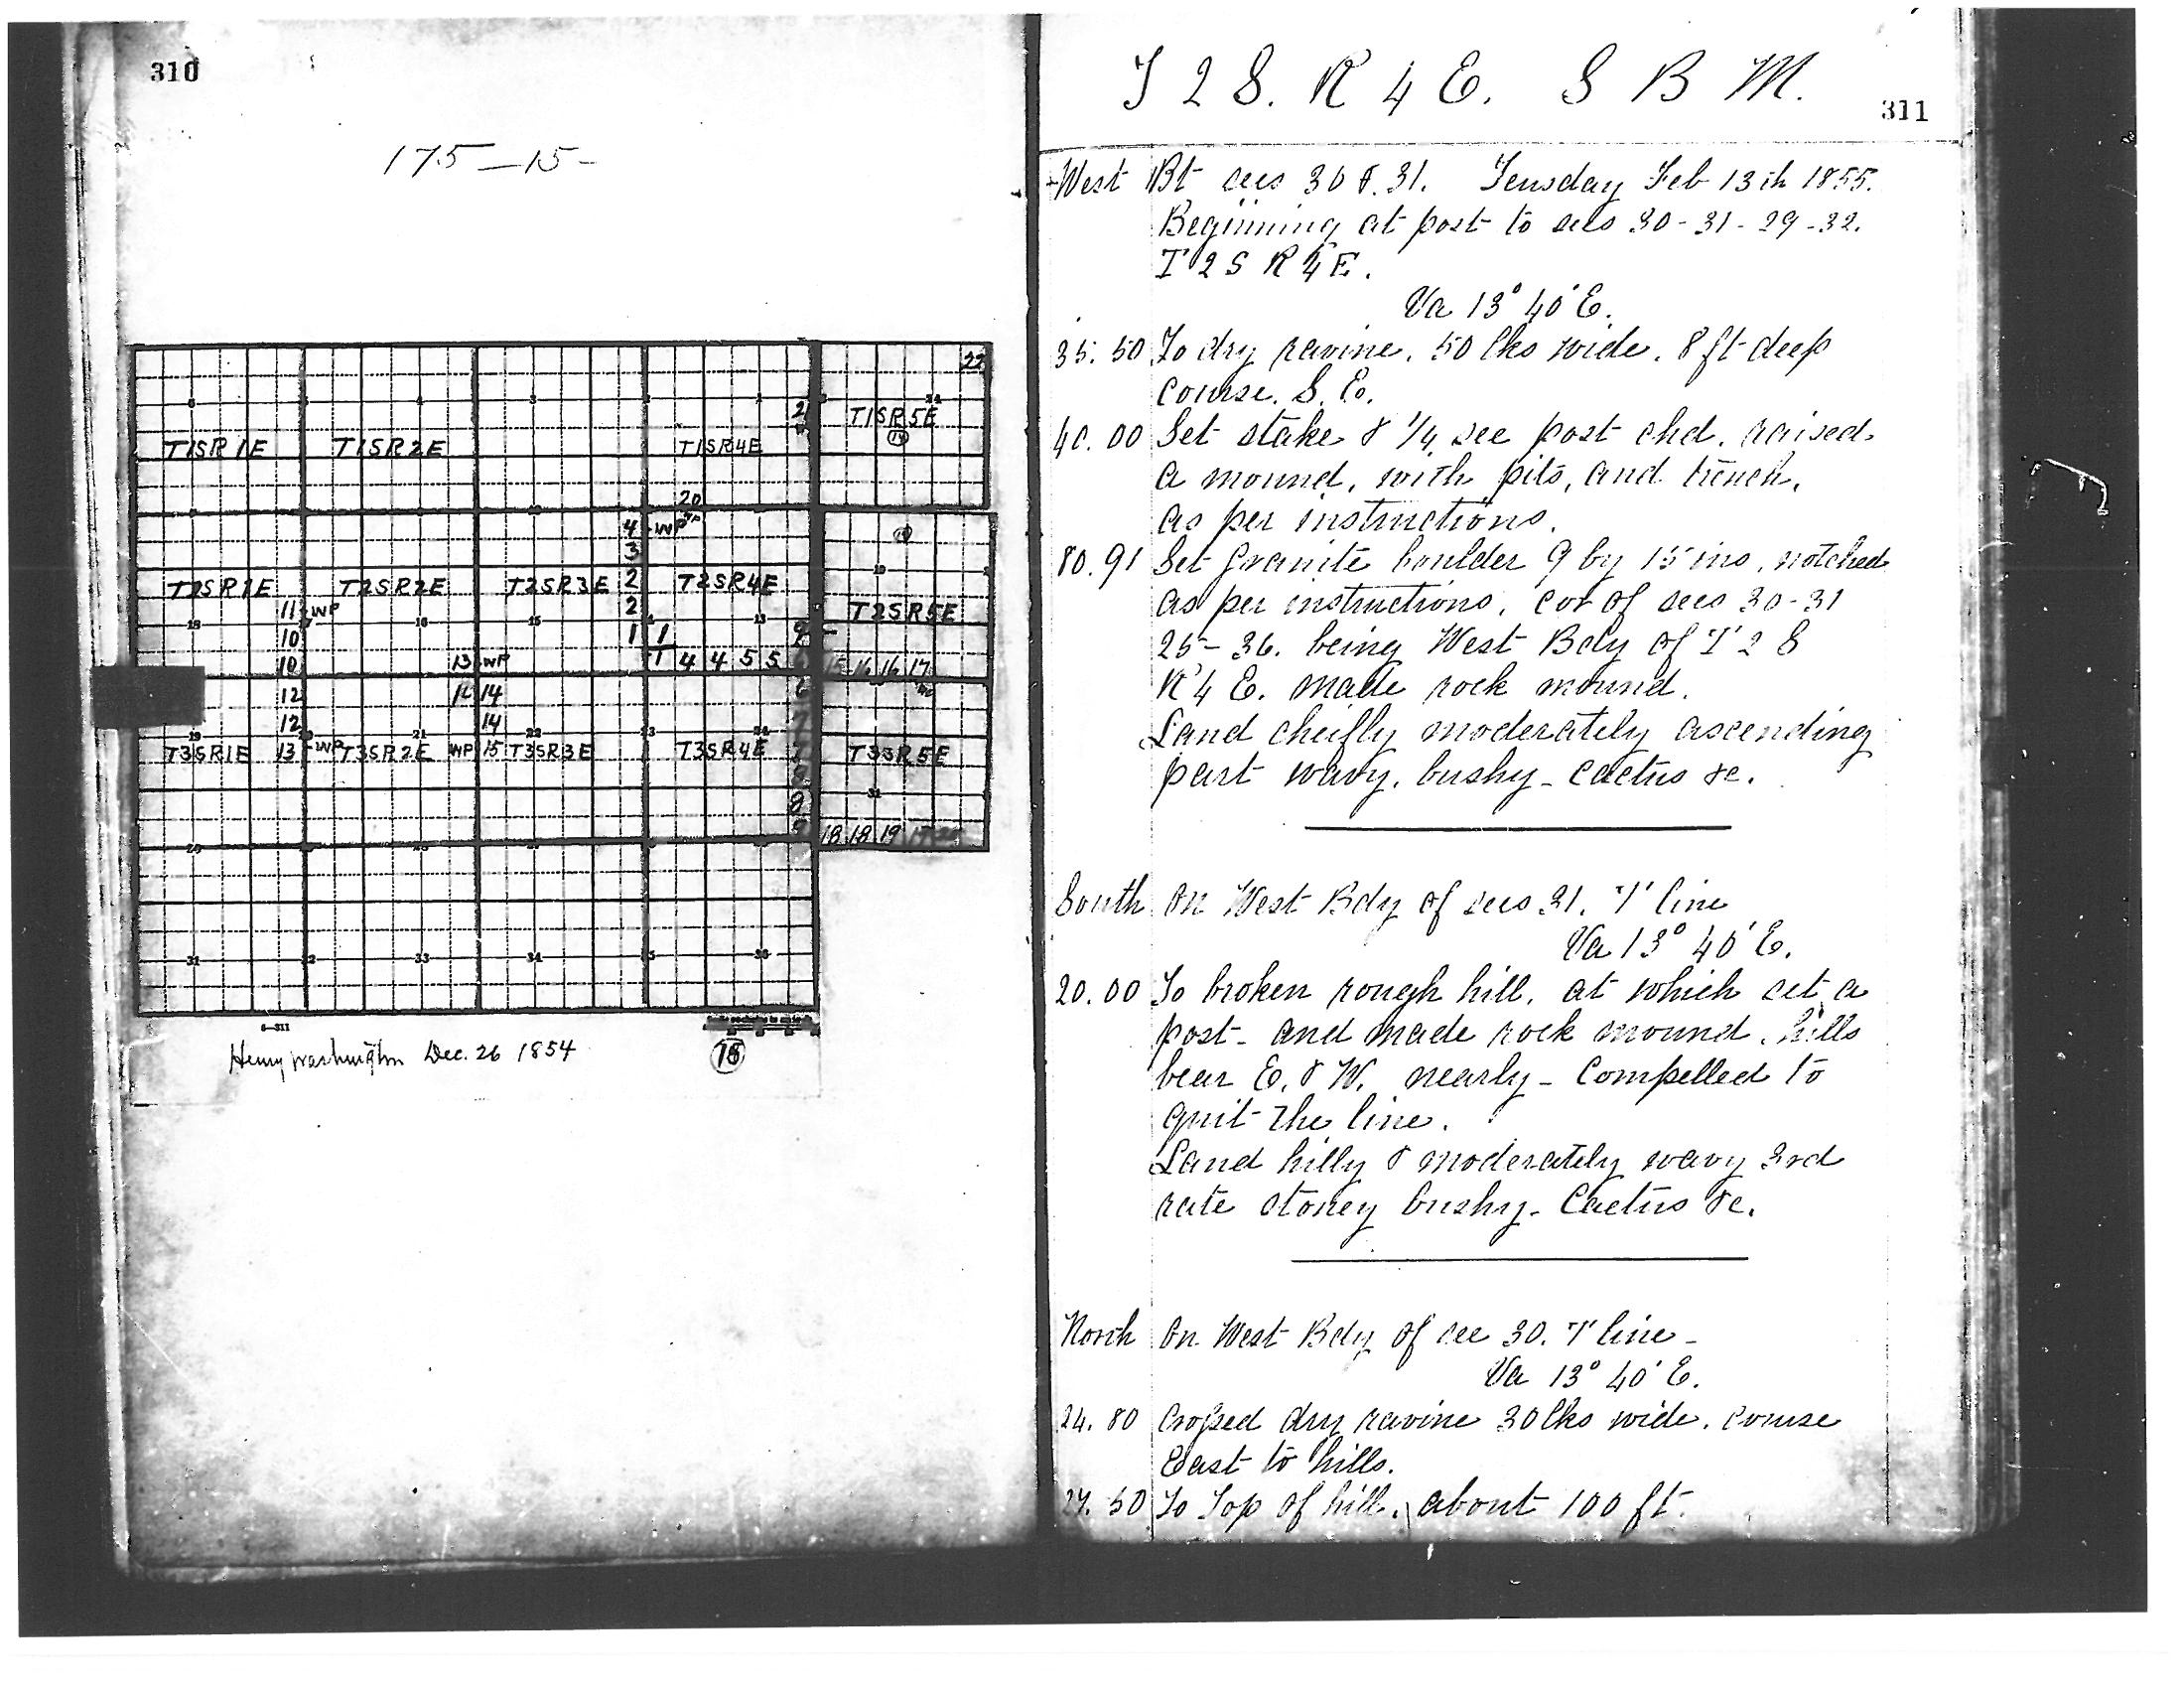 310
175-15-
22
T1SR1E T1SR2E T1SR4E T1SR5E
2
20
4 WP
3
T2SR1E T2SR2E T2SR3E 2 T2SR4E
11 WP 2 T2SR5E
10 1 1
10 13 WP 1 4 4 5 5 15 16 16 17
12 14
12 14
T3SR1E 13 WP T3SR2E WP 15 T3SR3E T3SR4E T3SR5E
18 18 19
31 33 34
6-311
Henry Washington Dec. 26 1854
T 2 S. R 4 E. S B M.
311
West Bt secs 30 & 31. Teusday Feb 13th 1855.
Beginning at post to secs 30-31-29-32.
T 2 S R 4 E.
Va 13° 40' E.
35.50 To dry ravine. 50 lks wide. 8 ft deep
course. S. E.
40.00 Set stake & 1/4 sec post chd. raised
a mound, with pits, and trench,
as per instructions.
80.91 Set granite boulder 9 by 15 ins, notched
as per instructions, cor of secs 30-31
25-36. being West Bdy of T 2 S
R 4 E. made rock mound.
Land cheifly moderately ascending
part wavy. bushy - cactus &c.
South On West Bdy of secs 31. T line
Va 13° 40' E.
20.00 To broken rough hill. at which set a
post - and made rock mound. hills
bear E. & W. nearly - Compelled to
quit the line.
Land hilly & moderately wavy 3rd
rate stoney bushy - Cactus &c.
North On West Bdy of sec 30. T line -
Va 13° 40' E.
24.80 Crossed dry ravine 30 lks wide. course
East to hills.
27.50 To Top of hill. about 100 ft.